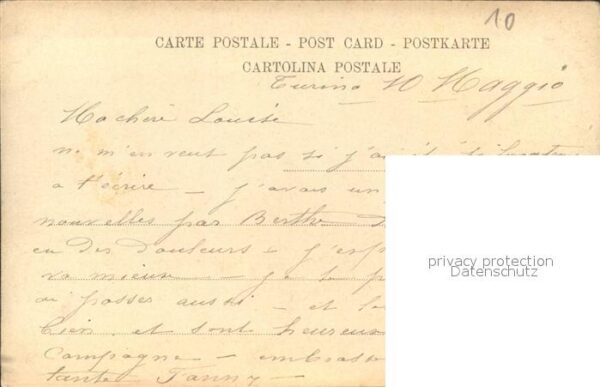 10
CARTE POSTALE - POST CARD - POSTKARTE
CARTOLINA POSTALE
Turino 10 Maggio
Ma chère Louise
ne m'en veut pas si j'ai été si
a t'écrire - j'avais
nouvelles par Berthe
eu des douleurs - j'esp
va mieux - je te
passer aussi - et
bien et sont heureux
Campagne - embrasse
tante Fanny -
privacy protection
Datenschutz